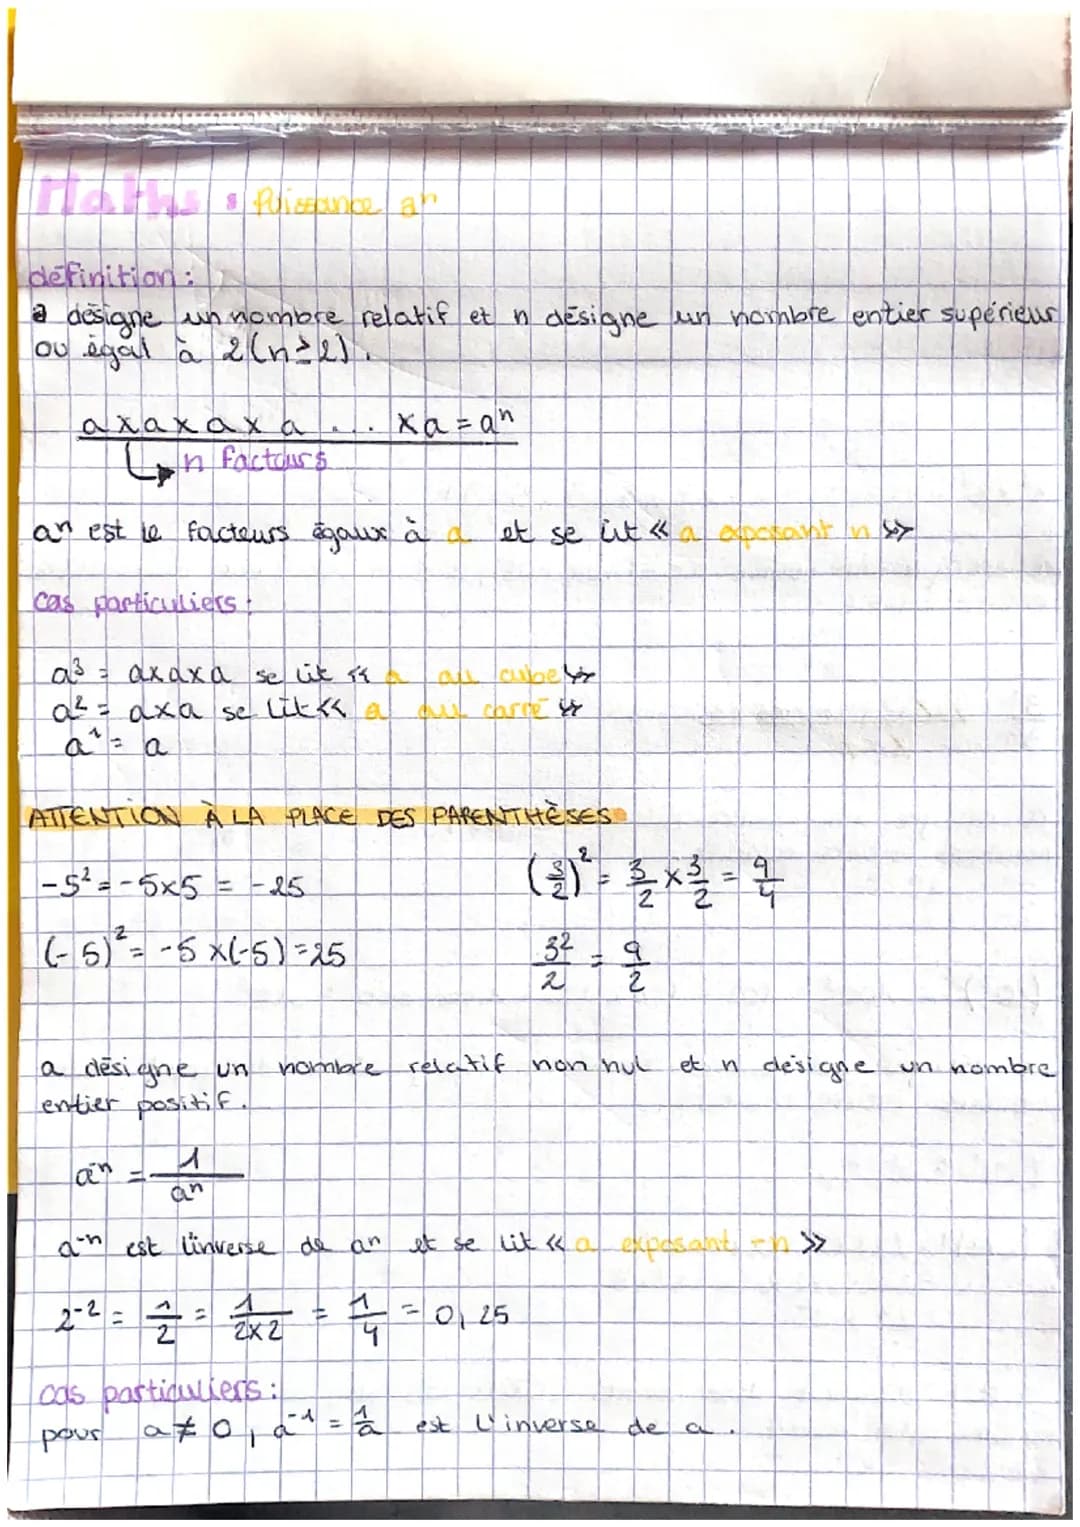 Maths : Puissance aⁿ
définition :
a désigne un nombre relatif et n désigne un nombre entier supérieur
ou égal à 2 (n ≥ 2).
a x a x a x a ... x a = aⁿ
n facteurs
an est le facteurs égaux à a et se lit « a exposant n »
cas particuliers :
a³ = axaxa se lit « a au cube »
a² = axa se lit « a au carré »
a¹ = a
ATTENTION À LA PLACE DES PARENTHÈSES
-5² = -5x5 = -25
(3/2)² = 3/2 x 3/2 = 9/4
(-5)² = -5 x(-5) = 25
3²/2 = 9/2
a désigne un nombre relatif non nul et n désigne un nombre
entier positif.
a⁻ⁿ = 1/aⁿ
a⁻ⁿ est l'inverse de an et se lit « a exposant -n »
2⁻² = 1/2 = 1/2x2 = 1/4 = 0,25
cas particuliers :
pour a ≠ 0, a⁻¹ = 1/a est l'inverse de a.